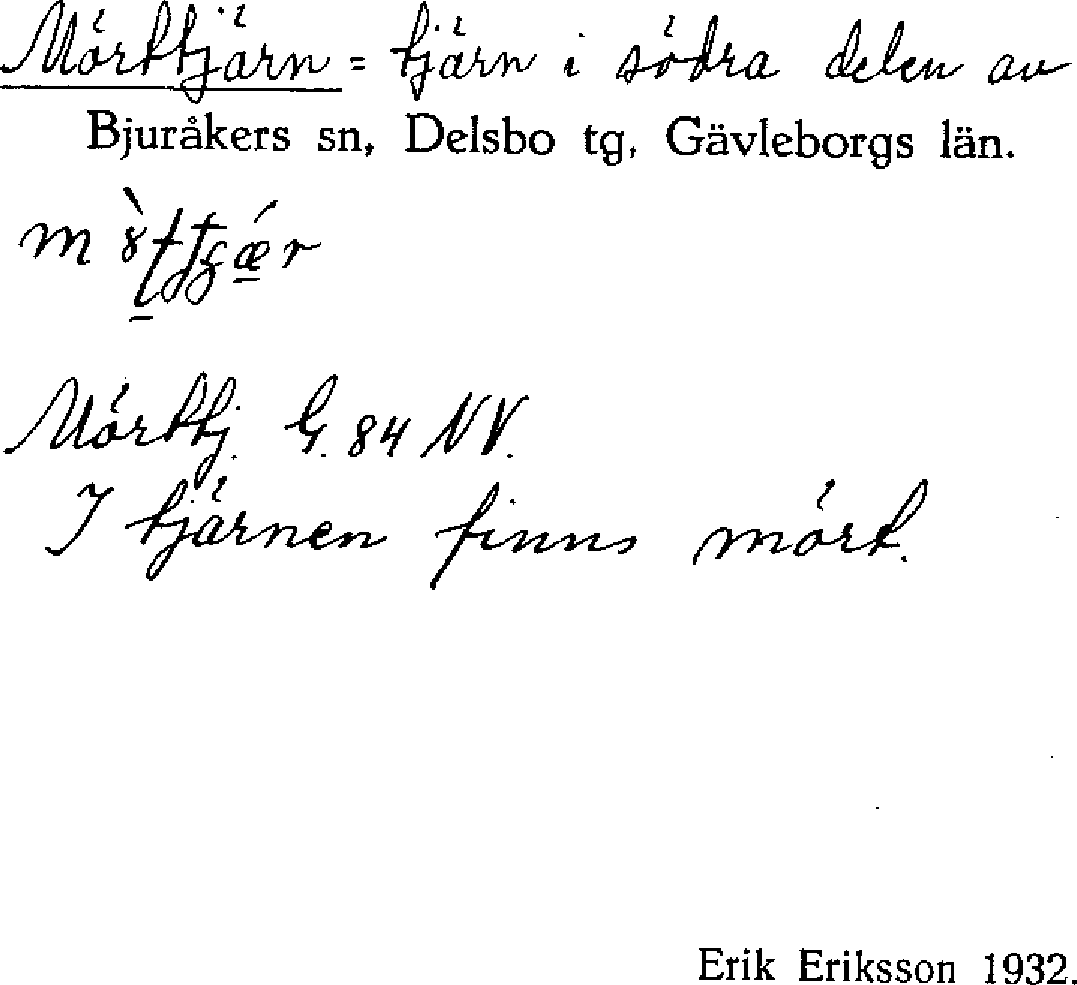 Mörttjärn = tjärn i södra delen av
Bjuråkers sn, Delsbo tg, Gävleborgs län.
Mörttj. G. 84 NV.
I tjärnen finns mört.
Erik Eriksson 1932.